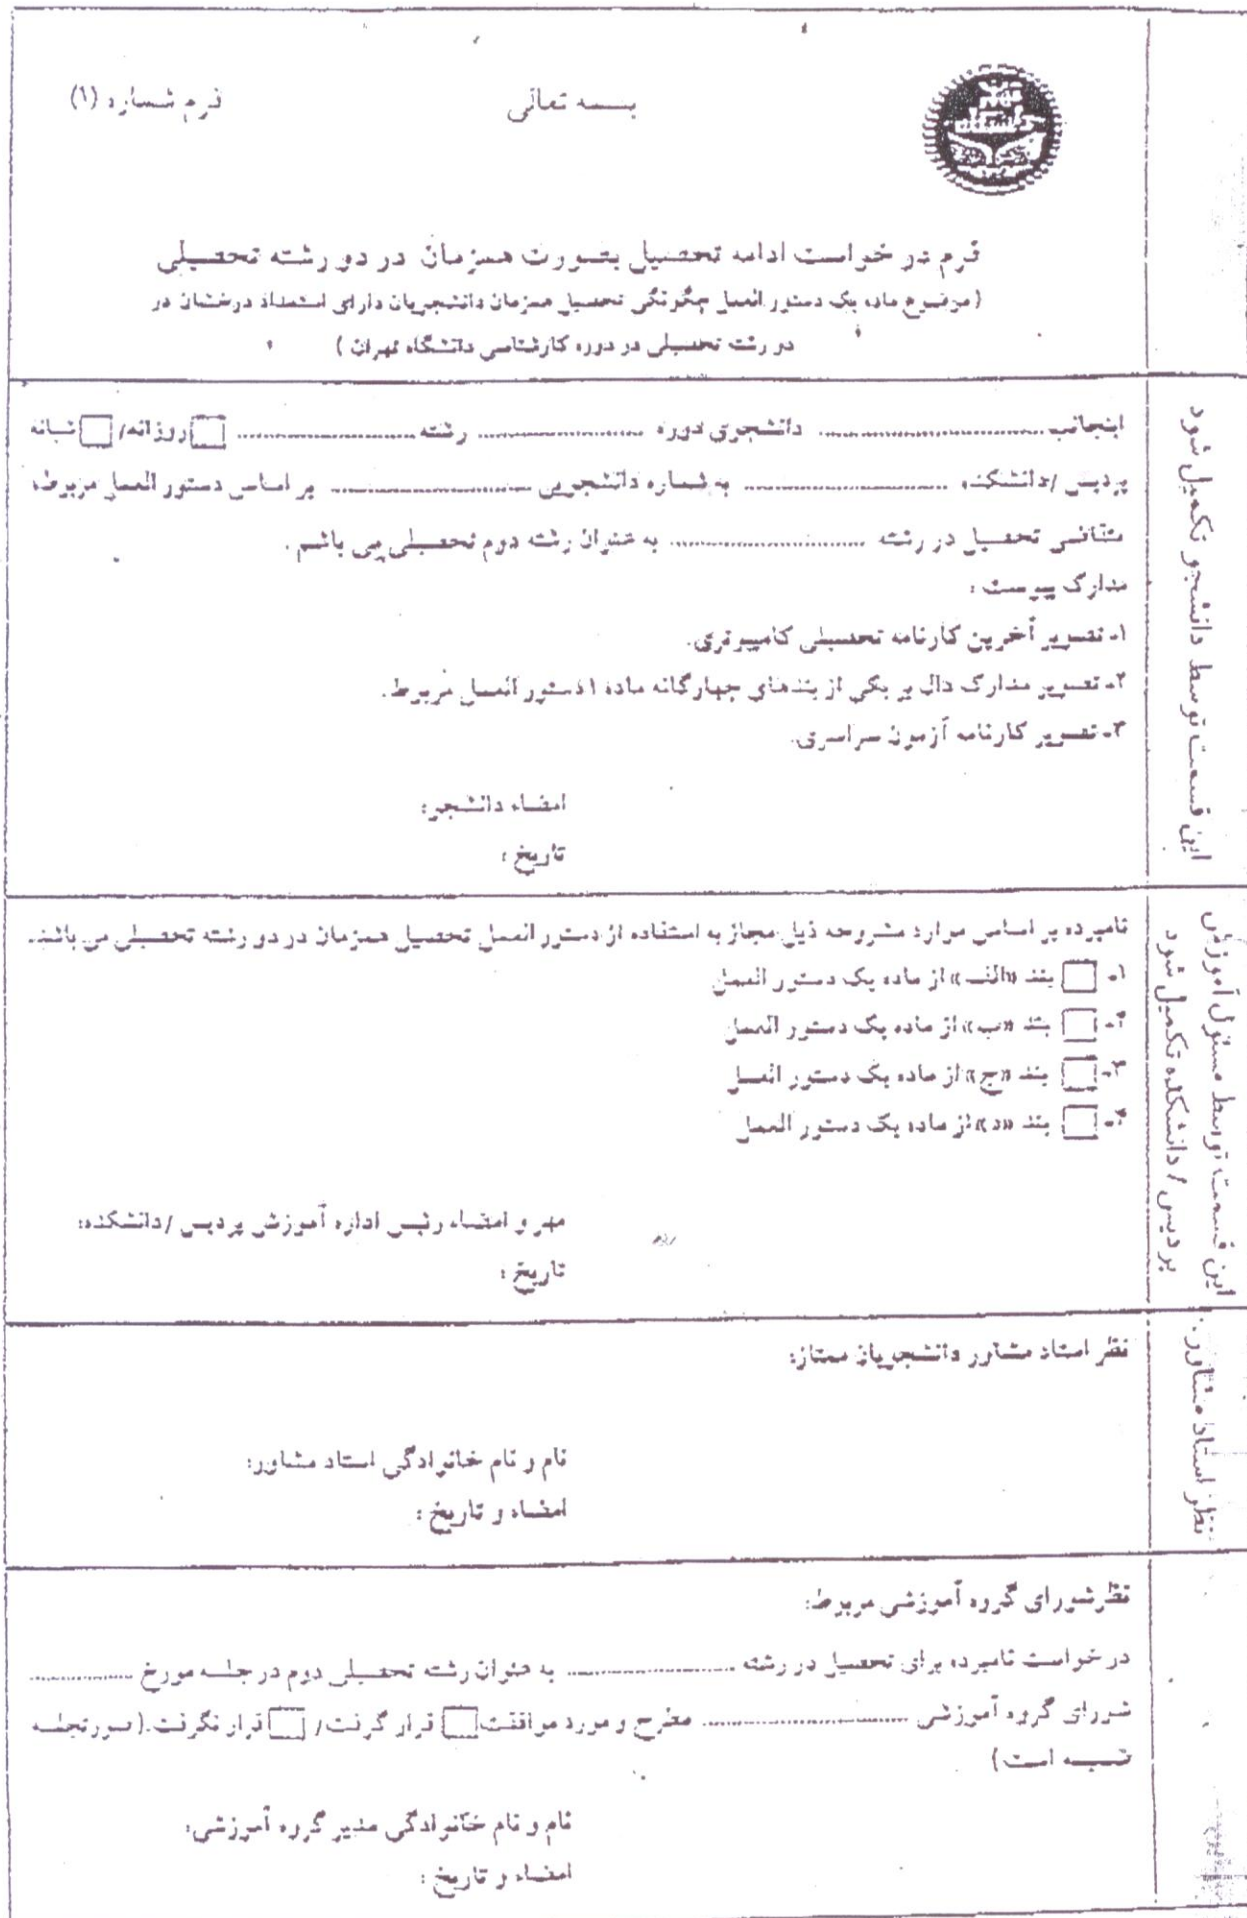 بسمه تعالی
فرم شماره (۱)
فرم درخواست ادامه تحصیل بصورت همزمان در دو رشته تحصیلی
(موضوع ماده یک دستورالعمل چگونگی تحصیل همزمان دانشجویان دارای استعداد درخشان در
دو رشته تحصیلی در دوره کارشناسی دانشگاه تهران)
این قسمت توسط دانشجو تکمیل شود
اینجانب .................... دانشجوی دوره .................... رشته .................... □ روزانه/ □ شبانه
پردیس /دانشکده .................... به شماره دانشجویی .................... بر اساس دستور العمل مربوطه
متقاضی تحصیل در رشته .................... به عنوان رشته دوم تحصیلی می باشم .
مدارک پیوست :
۱- تصویر آخرین کارنامه تحصیلی کامپیوتری.
۲- تصویر مدارک دال بر یکی از بندهای چهارگانه ماده ۱ دستور العمل مربوط.
۳- تصویر کارنامه آزمون سراسری.
امضاء دانشجو:
تاریخ :
این قسمت توسط مسئول آموزش
پردیس / دانشکده تکمیل شود
نامبرده بر اساس موارد مشروحه ذیل مجاز به استفاده از دستور العمل تحصیل همزمان در دو رشته تحصیلی می باشد.
۱- □ بند «الف» از ماده یک دستور العمل
۲- □ بند «ب» از ماده یک دستور العمل
۳- □ بند «ج» از ماده یک دستور العمل
۴- □ بند «د» از ماده یک دستور العمل
مهر و امضاء رئیس اداره آموزش پردیس /دانشکده:
تاریخ :
نظر استاد مشاور:
نظر استاد مشاور دانشجویان ممتاز:
نام و نام خانوادگی استاد مشاور:
امضاء و تاریخ :
نظر شورای گروه آموزشی مربوط:
درخواست نامبرده برای تحصیل در رشته .................... به عنوان رشته تحصیلی دوم در جلسه مورخ ....................
شورای گروه آموزشی .................... مطرح و مورد موافقت □ قرار گرفت/ □ قرار نگرفت.(صورتجلسه
ضمیمه است)
نام و نام خانوادگی مدیر گروه آموزشی:
امضاء و تاریخ :